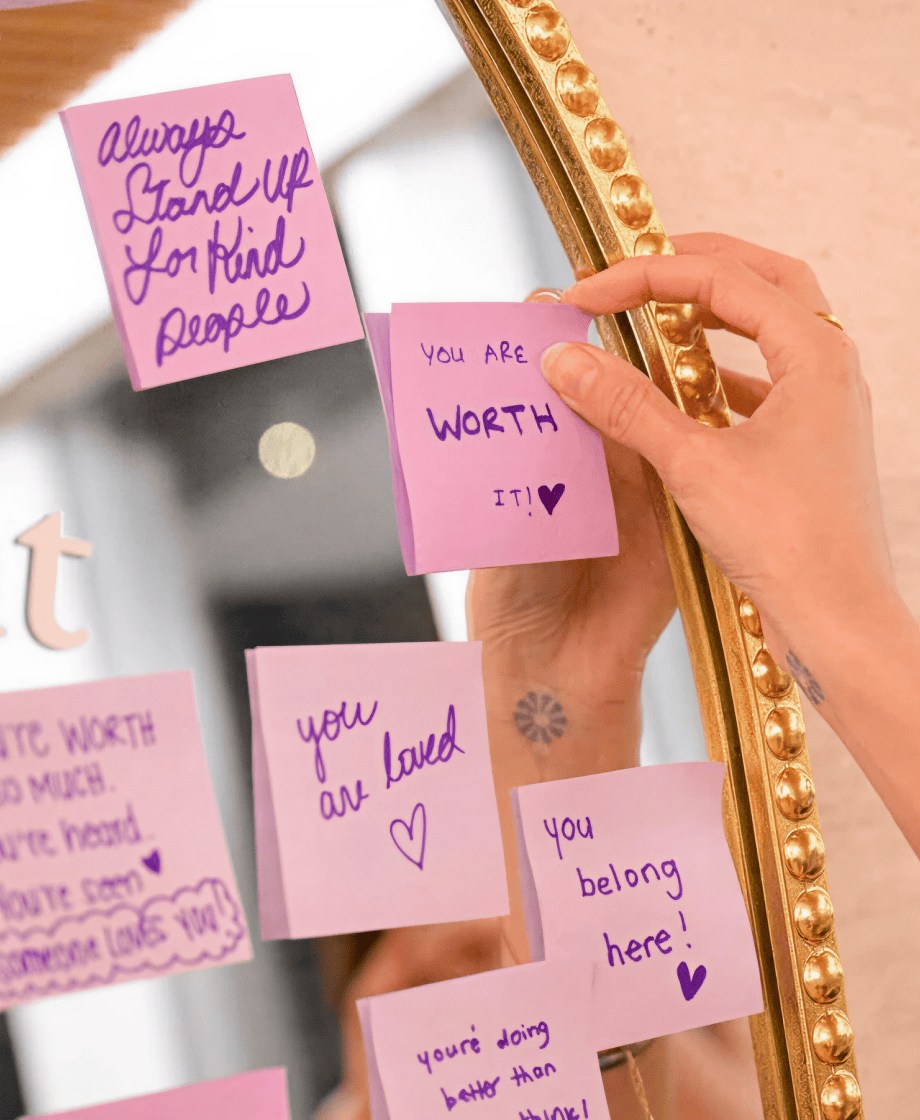 always
Stand UP
for Kind
people
YOU ARE
WORTH
IT!
t
WORTH
MUCH.
heard.
You're seen
someone LOVES YOU!
you
are loved
you
belong
here!
you're doing
better than
think!